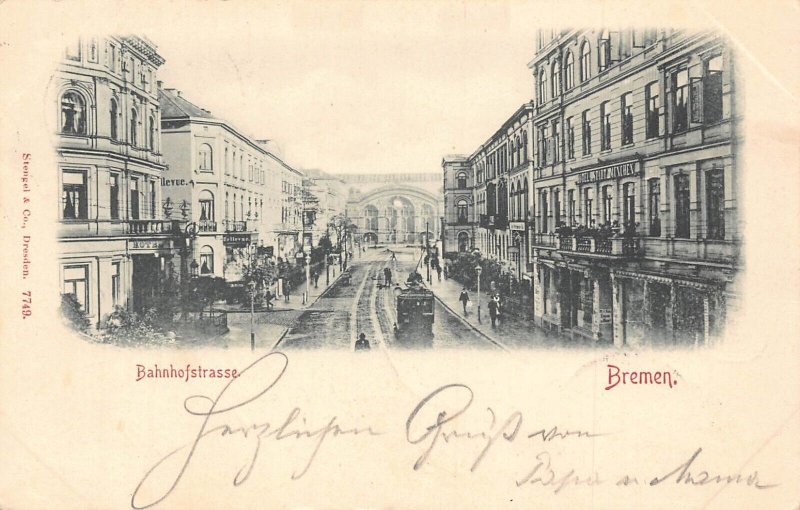 Stengel & Co., Dresden. 7749.
llevue.
Bellevue
HOTEL
STADT MÜNCHEN
Bahnhofstrasse.
Bremen.
Herzlichen Gruß von
Papa u Mama